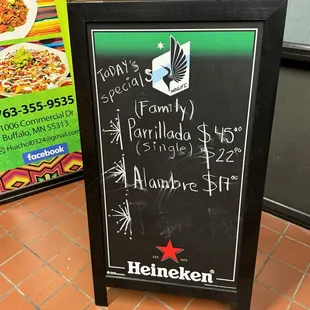 63-355-9535
1006 Commercial Dr
Buffalo, MN 55313
Huichol0324@gmail.com
facebook
MNUFC
TODAY'S
specials
(Family)
Parrillada $45.00
(single) $22.00
Alambre $17.00
Heineken